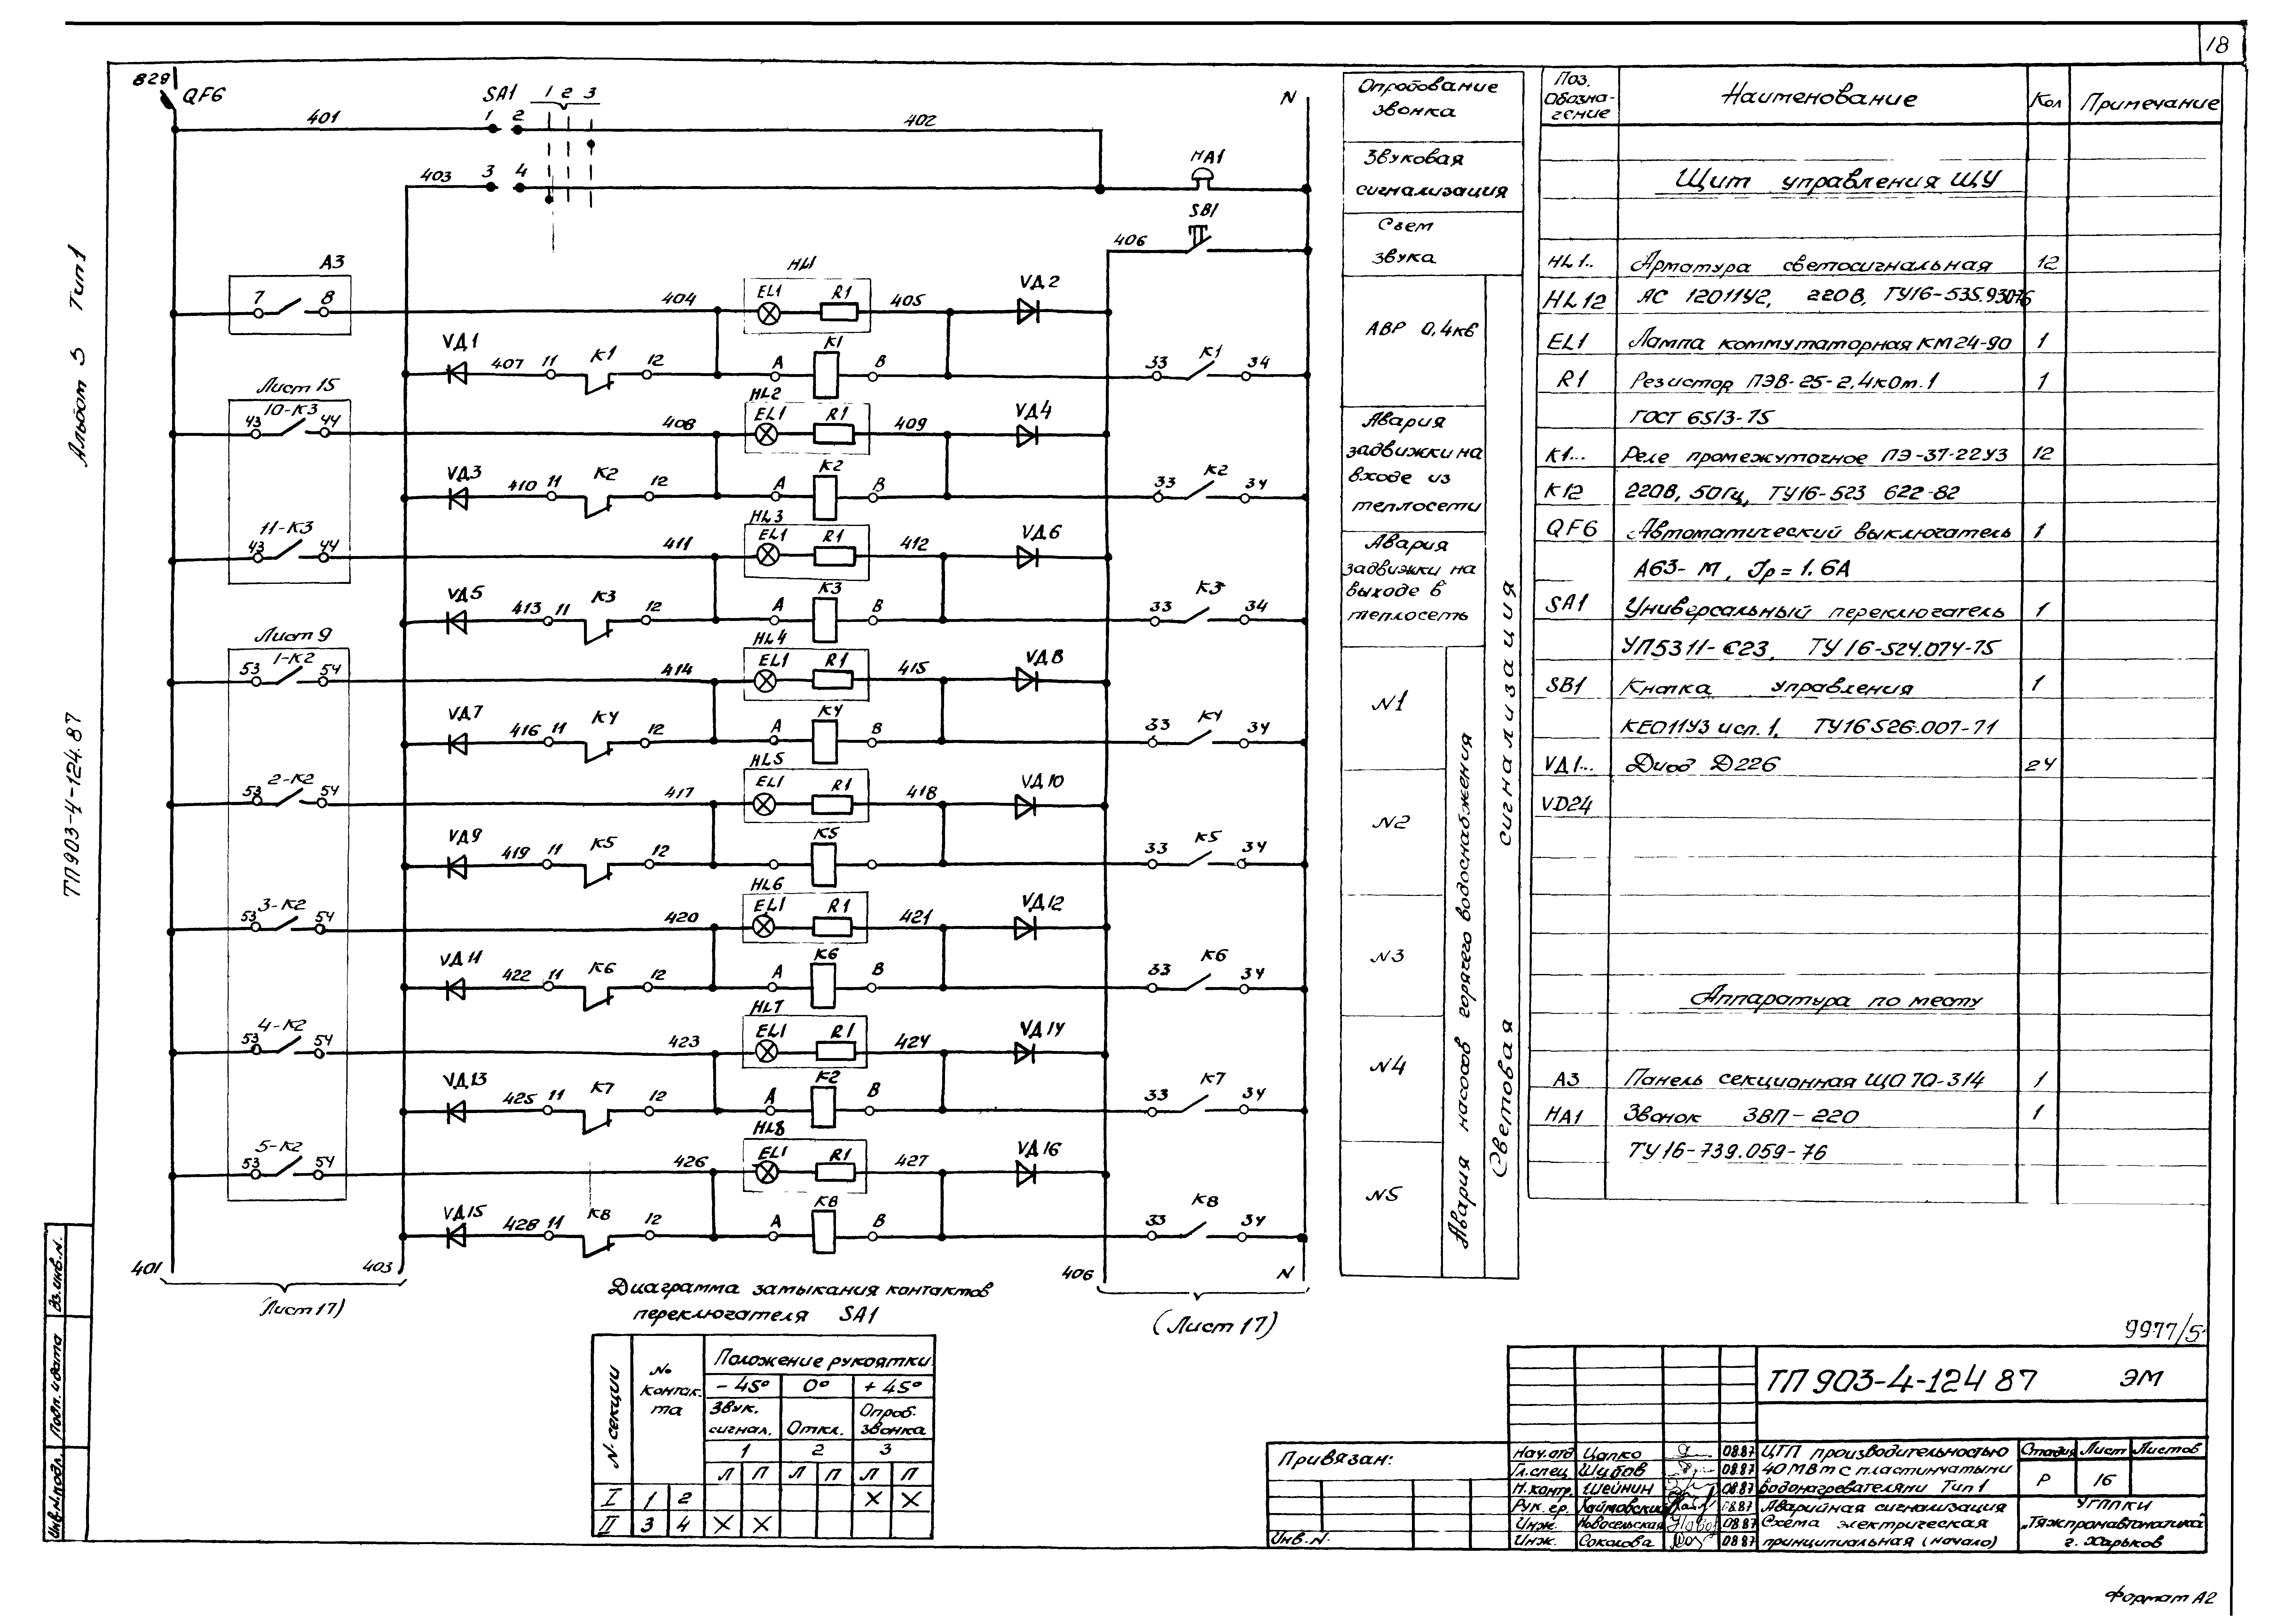 18
829
QF6
401
SA1
1 2 3
1 2
402
N
403
3 4
HA1
SB1
406
А3
7 8
404
HL1
EL1 R1
405
VД2
VД1
407
11 K1 12
A K1 B
33 K1 34
Лист 15
10-K3
43 44
408
HL2
EL1 R1
409
VД4
VД3
410 11 K2 12
A K2 B
33 K2 34
11-K3
43 44
411
HL3
EL1 R1
412
VД6
VД5
413 11 K3 12
A K3 B
33 K3 34
Лист 9
1-K2
53 54
414
HL4
EL1 R1
415
VД8
VД7
416 11 K4 12
A K4 B
33 K4 34
2-K2
53 54
417
HL5
EL1 R1
418
VД10
VД9
419 11 K5 12
K5
33 K5 34
3-K2
53 54
420
HL6
EL1 R1
421
VД12
VД11
422 11 K6 12
A K6 B
33 K6 34
4-K2
53 54
423
HL7
EL1 R1
424
VД14
VД13
425 11 K7 12
A K2 B
33 K7 34
5-K2
53 54
426
HL8
EL1 R1
427
VД16
VД15
428 11 K8 12
A K8 B
33 K8 34
401
403
406
N
(Лист 17)
(Лист 17)
Опробование
звонка
Звуковая
сигнализация
Съем
звука
АВР 0,4кв
Авария
задвижки на
входе из
теплосети
Авария
задвижки на
выходе в
теплосеть
N1
N2
N3
N4
N5
Авария насосов горячего водоснабжения
Световая сигнализация
Поз. Обозна-чение Наименование Кол Примечание
Щит управления ЩУ
HL1.. Арматура светосигнальная 12
HL12 АС 12011У2, 220В, ТУ16-535.93076
EL1 Лампа коммутаторная КМ24-90 1
R1 Резистор ПЭВ-25-2,4кОм.1 1
ГОСТ 6513-75
K1... Реле промежуточное ПЭ-37-22У3 12
K12 220В, 50Гц, ТУ16-523 622-82
QF6 Автоматический выключатель 1
А63-М, Jр=1.6А
SA1 Универсальный переключатель 1
УП5311-С23, ТУ16-524.074-75
SB1 Кнопка управления 1
КЕ011У3 исп.1, ТУ16526.007-71
VД1... Диод Д226 24
VD24
Аппаратура по месту
А3 Панель секционная ЩО 70-314 1
HA1 Звонок ЗВП-220 1
ТУ16-739.059-76
Диаграмма замыкания контактов
переключателя SA1
N секции
№ контак. та
Положение рукоятки
-45° 0° +45°
Звук. сигнал. Откл. Опроб. звонка
1 2 3
Л П Л П Л П
I 1 2 X X
II 3 4 X X
9977/5
ТП 903-4-124 87 ЭМ
Привязан:
Инв.N.
Нач.отд Цапко 08.87
Гл.спец Шубов 08.87
Н.контр. Шейнин 08.87
Рук.гр. Хаймовский 08.87
Инж. Новосельская 08.87
Инж. Соколова 08.87
ЦТП производительностью
40 МВт с пластинчатыми
водонагревателями Тип 1
Аварийная сигнализация
Схема электрическая
принципиальная (начало)
Стадия Лист Листов
Р 16
УГППКИ
„Тяжпромавтоматика"
г. Харьков
Формат А2
Альбом 5 Тип 1
ТП903-4-124.87
Вз.инв.N.
Подп. и дата
Инв.N.подл.